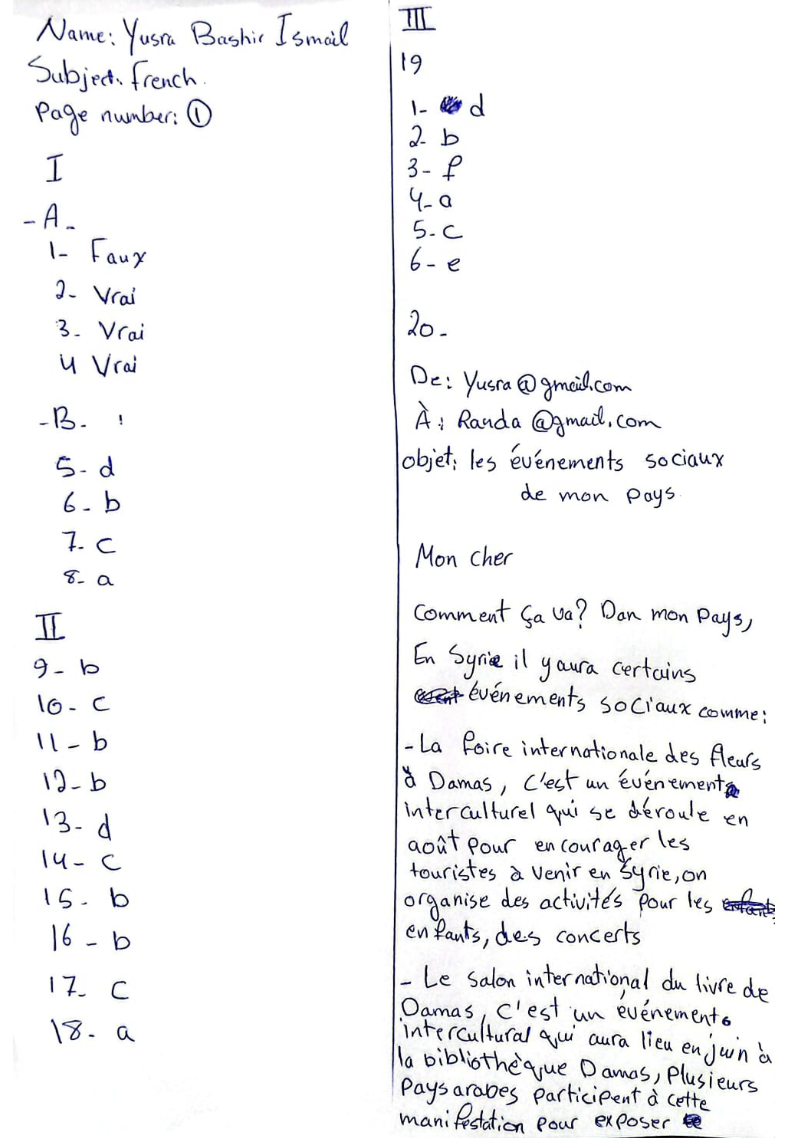 Name: Yusra Bashir Ismail
Subject: french.
Page number: ①
I
- A -
1- Faux
2- Vrai
3- Vrai
4 Vrai
- B -
5- d
6- b
7- c
8- a
II
9- b
10- c
11- b
12- b
13- d
14- c
15- b
16- b
17- c
18- a
III
19
1- d
2- b
3- f
4- a
5- c
6- e
20-
De: Yusra@gmail.com
À: Randa@gmail.com
objet: les événements sociaux
de mon pays
Mon cher
Comment ça va? Dan mon Pays,
En Syrie il y aura certains
événements sociaux comme:
- La foire internationale des fleurs
à Damas, c'est un événement
interculturel qui se déroule en
août pour encourager les
touristes à venir en Syrie, on
organise des activités pour les
enfants, des concerts
- Le salon international du livre de
Damas, c'est un événement
intercultural qui aura lieu en juin à
la bibliothèque Damas, Plusieurs
Pays arabes Participent à cette
manifestation pour exposer